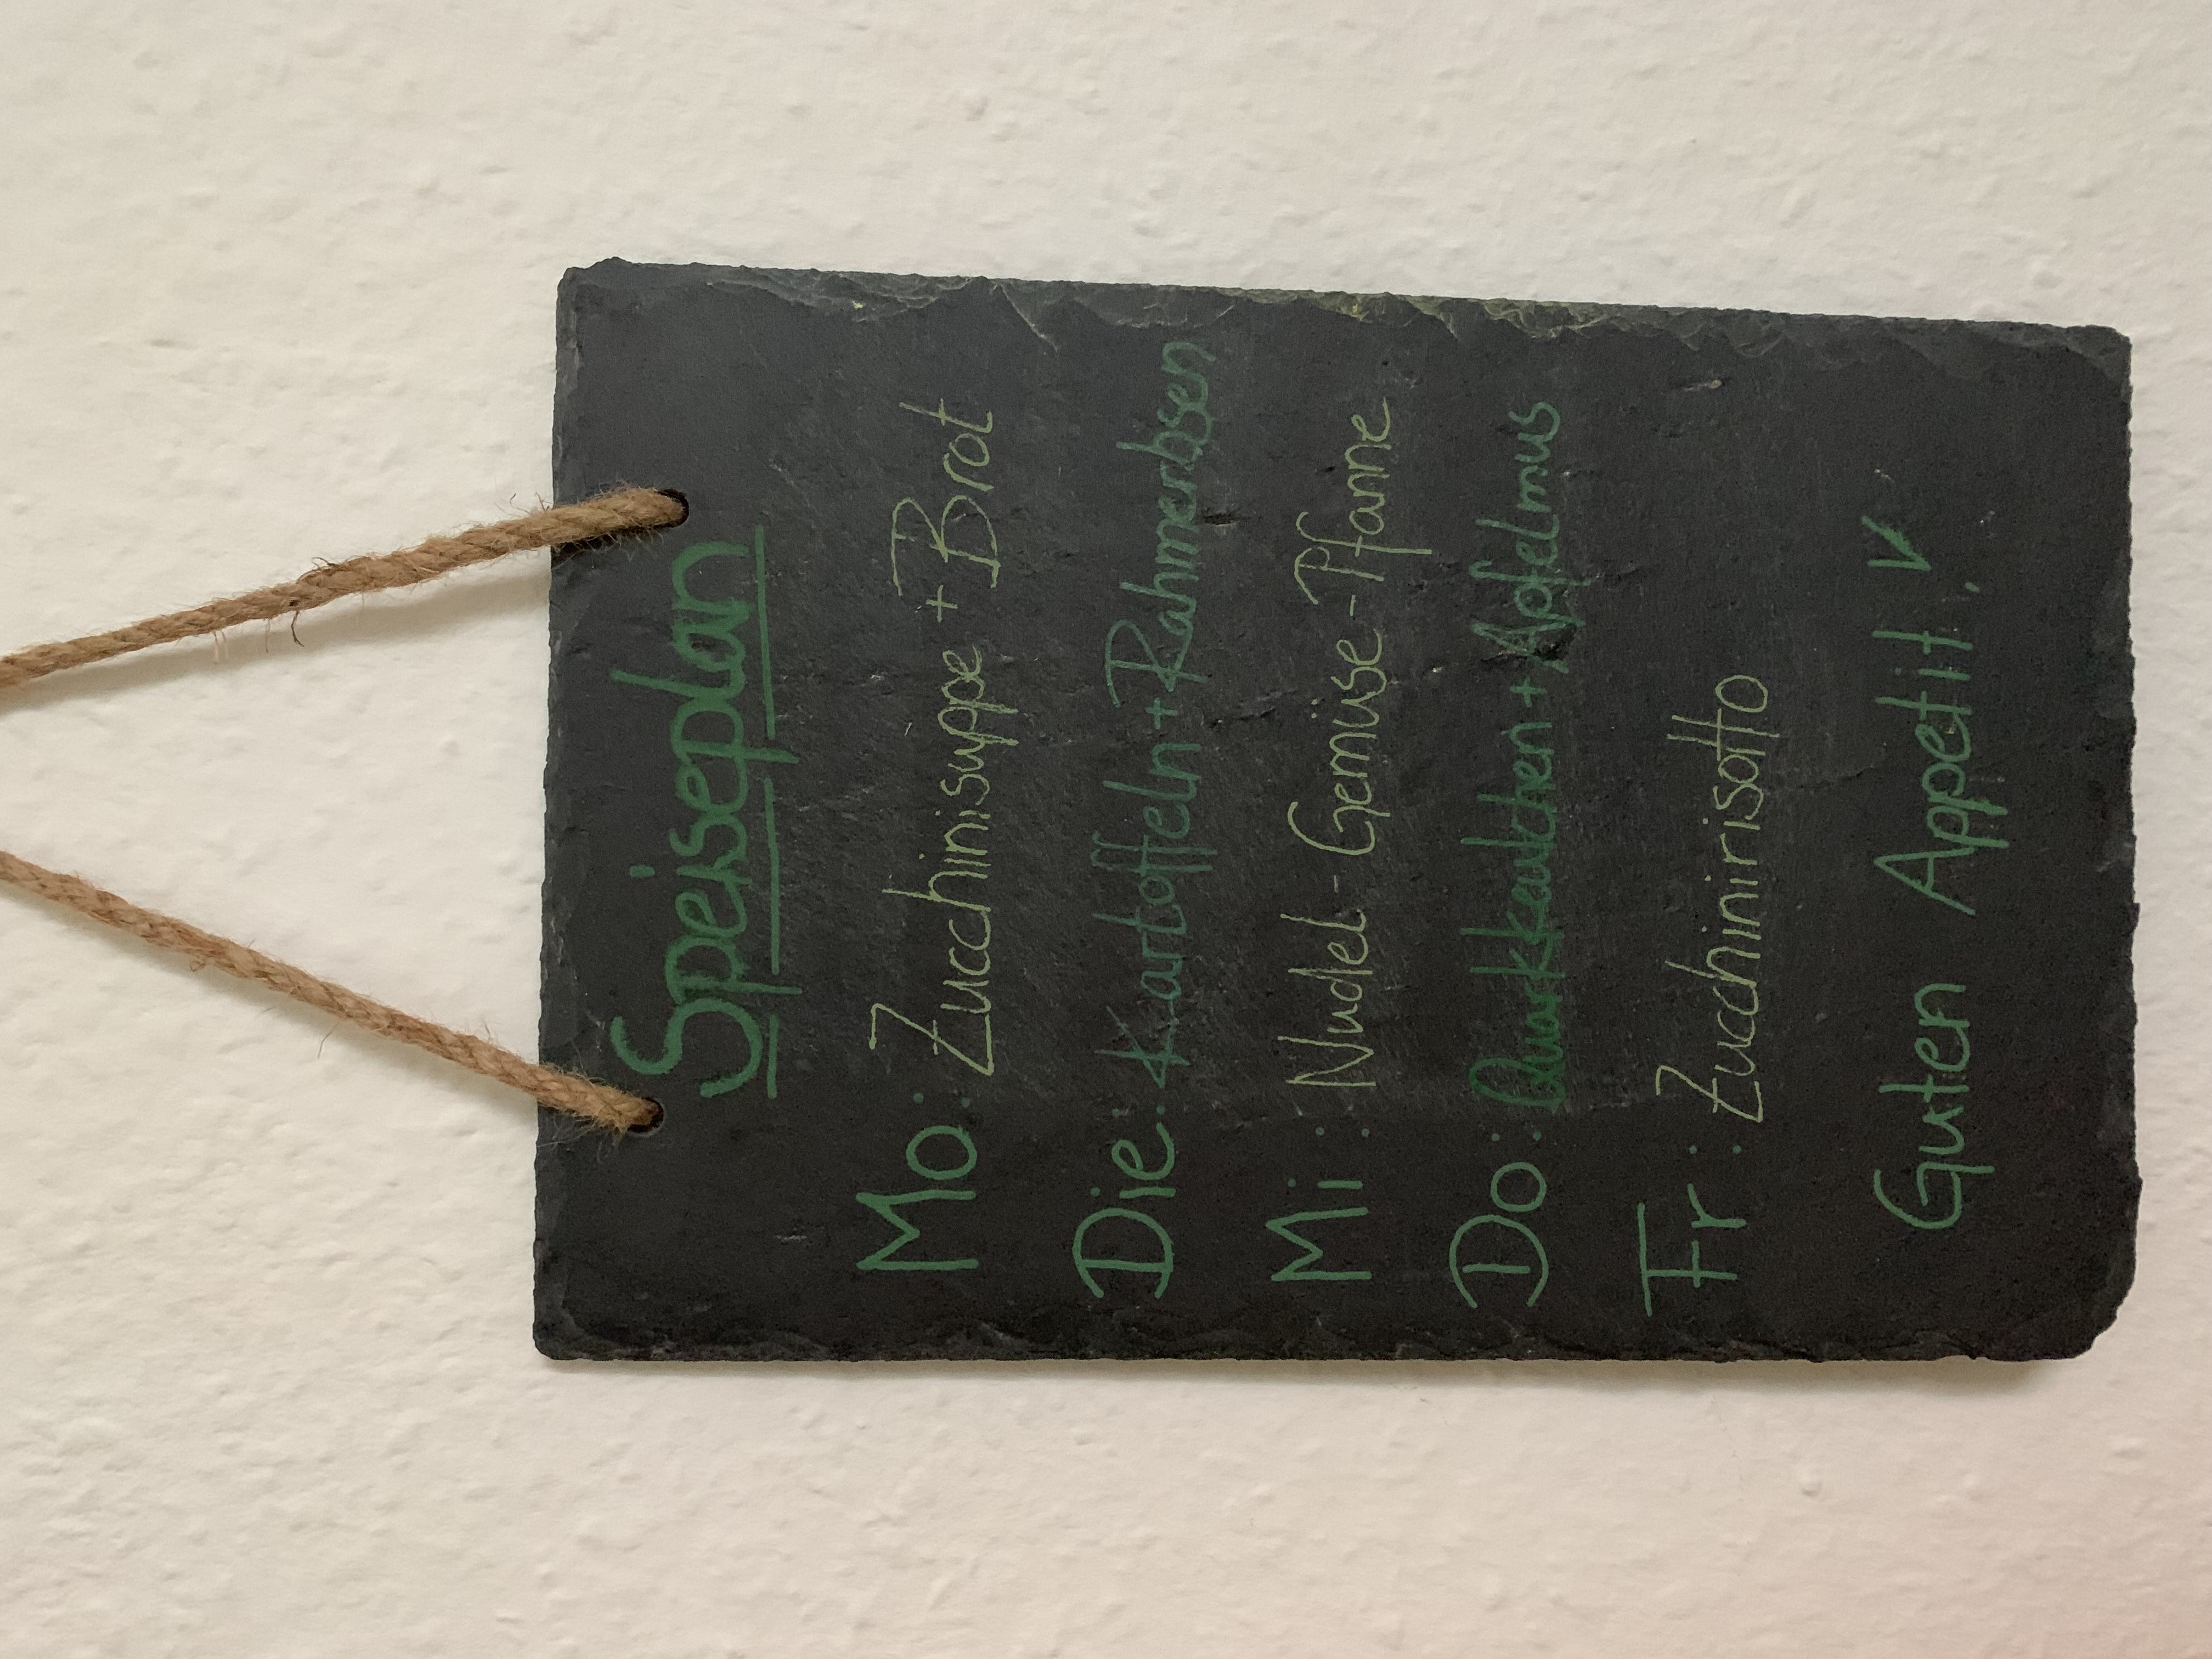 Speiseplan
Mo: Zucchinisuppe + Brot
Die: Kartoffeln + Rahmerbsen
Mi: Nudel-Gemüse-Pfanne
Do: Quarkkeulchen + Apfelmus
Fr: Zucchinirisotto
Guten Appetit!